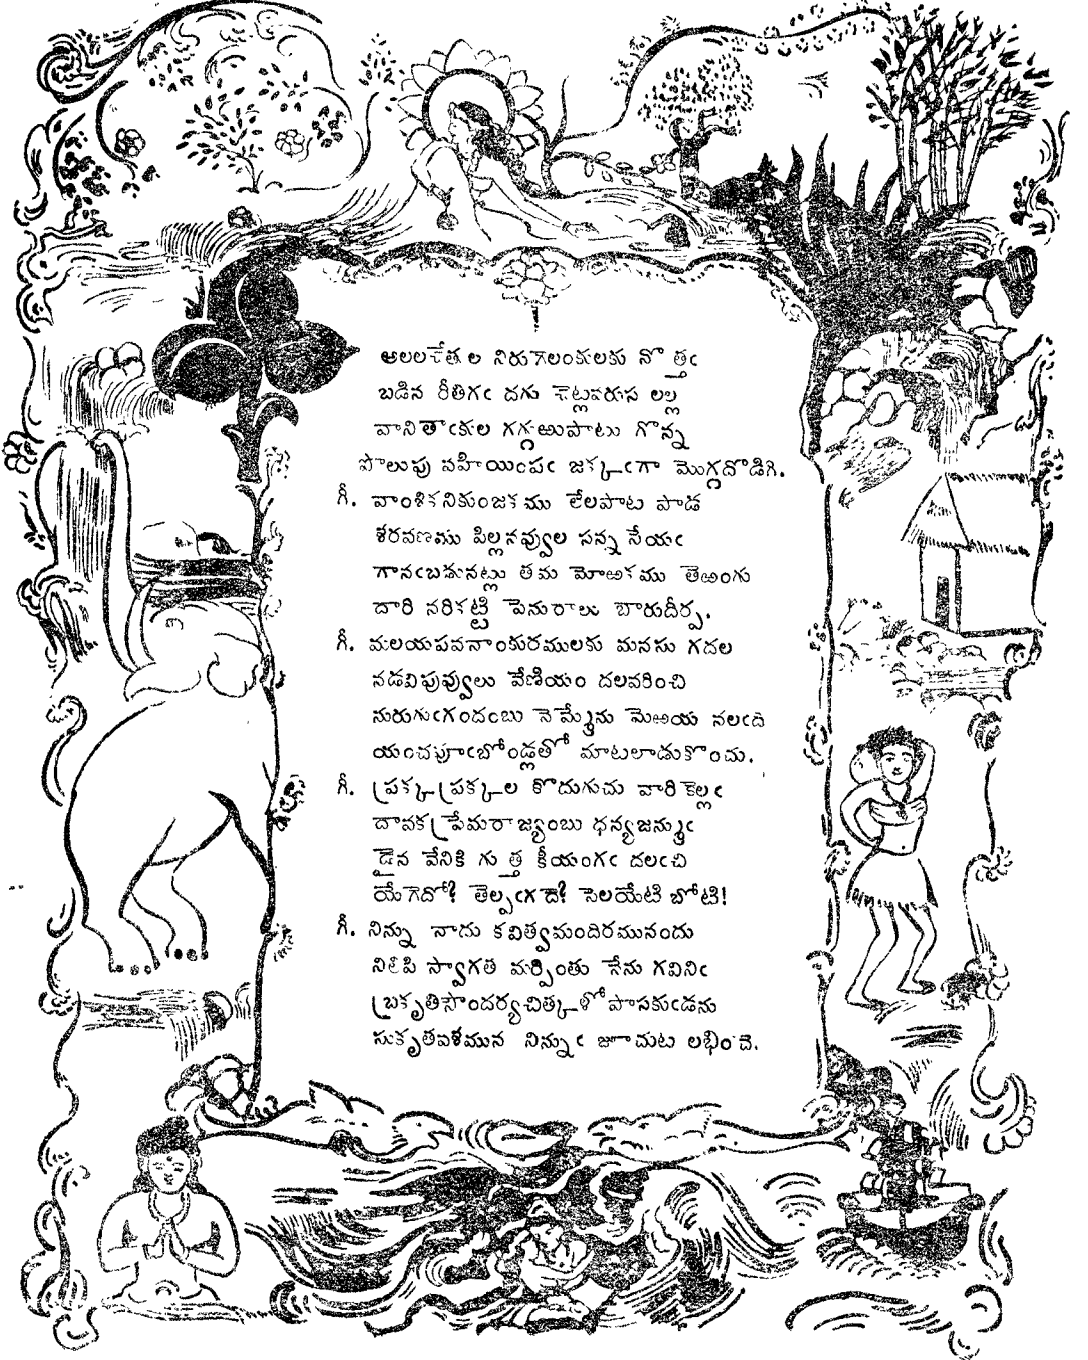 అలలచేత ల నిరుగెలంకులకు నొ త్తఁ
బడిన రీతిగఁ దగు చెట్లవరుస లల్ల
వాని తాఁకుల గగ్గఱుపాటు గొన్న
పొలుపు నహియింపఁ జక్కఁగా మొగ్గదొడిగి.
గీ. వాంశికనికుంజకము లేలపాట పాడ
శరవణము పిల్లనవ్వుల సన్న సేయఁ
గానఁబడునట్లు తమ మోఱకము తెఱంగు
దారి నరికట్టి పెనురాలు బారుదీర్ప.
గీ. మలయపవనాంకురములకు మనసు గదల
నడవిపువ్వులు వేణియం దలవరించి
నురుగుఁగందంబు నెమ్మేను మెఱయ నలఁది
యంచపూఁబోండ్లతో మాటలాడుకొంచు.
గీ. ప్రక్క ప్రక్కల కొదుగుచు వారి కెల్లఁ
దావక ప్రేమరాజ్యంబు ధన్యజన్ముఁ
డైన వేనికి గు త్త కీయంగఁ దలఁచి
యేగెదో? తెల్పఁగదె? సెలయేటి బోటి!
గీ. నిన్ను నాదు కవిత్వమందిరమునందు
నిలిపి స్వాగత మర్పింతు నేను గవినిఁ
బ్రకృతిసౌందర్యచిత్కళోపాసకుఁడను
సుకృతవశమున నిన్నుఁ జూచుట లభించె.